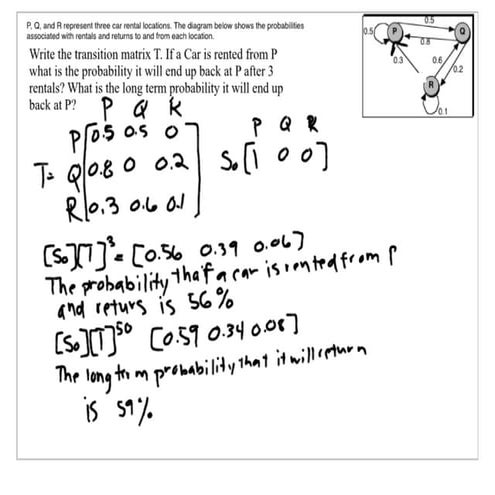 P, Q, and R represent three car rental locations. The diagram below shows the probabilities
associated with rentals and returns to and from each location.
Write the transition matrix T. If a Car is rented from P
what is the probability it will end up back at P after 3
rentals? What is the long term probability it will end up
back at P?
0.5
0.5 P Q
0.8
0.3 0.6 0.2
R
0.1
P Q R
P [0.5 0.5 0
T= Q 0.8 0 0.2
R 0.3 0.6 0.1]
P Q R
S₀ [1 0 0]
[S₀][T]³ = [0.56 0.39 0.06]
The probability that a car is rented from P
and returs is 56%
[S₀][T]⁵⁰ [0.59 0.34 0.08]
The long trm probability that it will return
is 59%